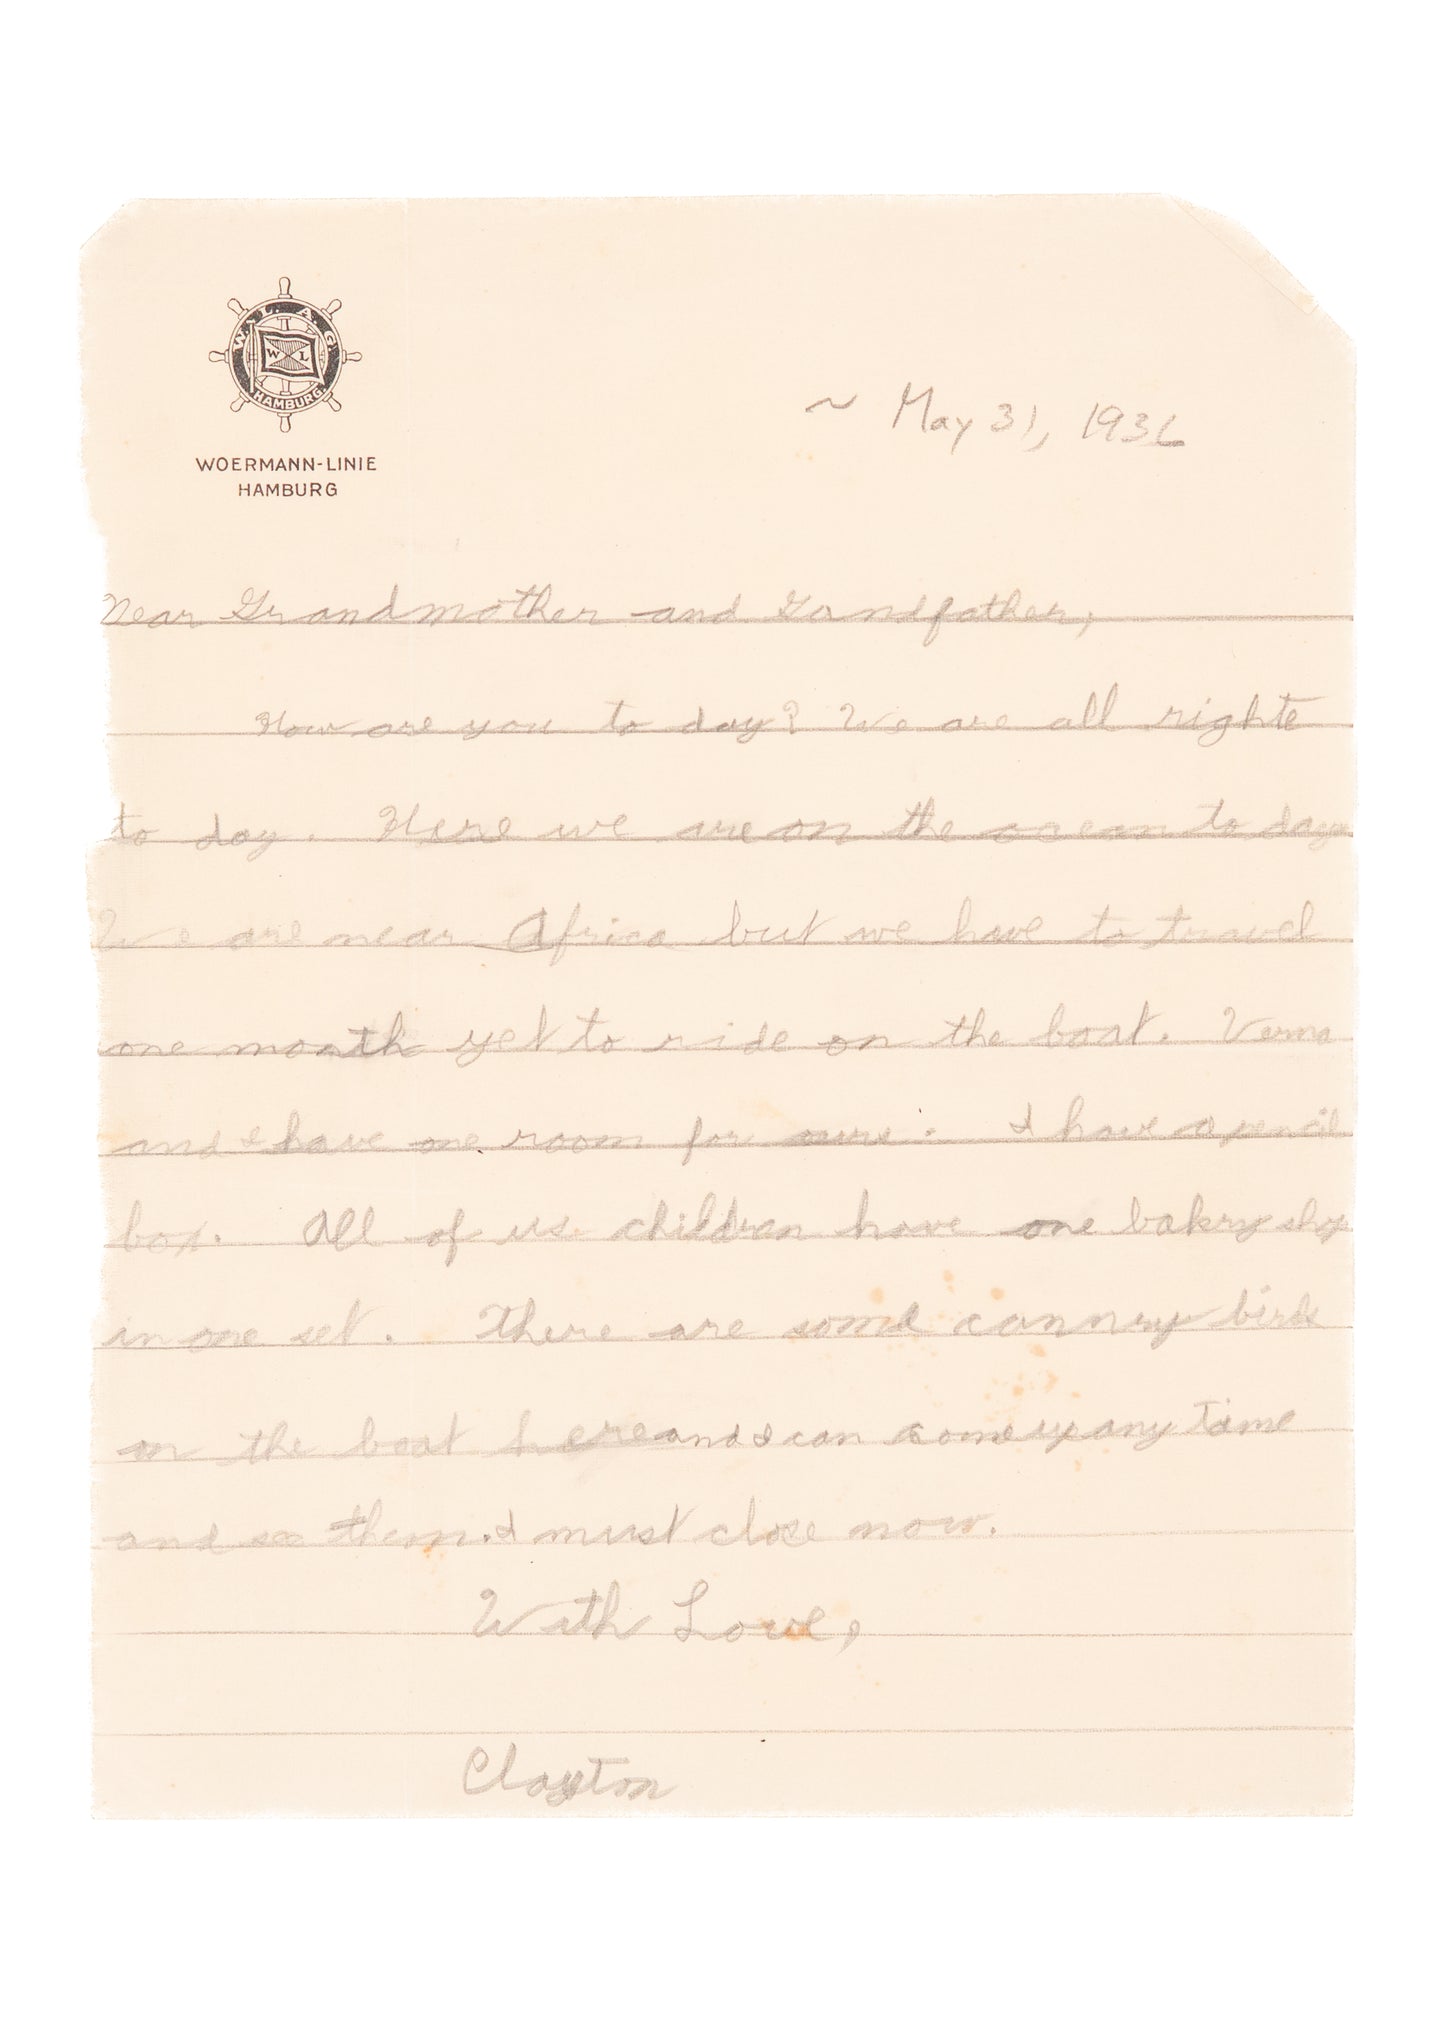 W. L. A. G.
W L
HAMBURG.
WOERMANN-LINIE
HAMBURG
~ May 31, 1936
Dear Grandmother and Grandfather,
How are you to day? We are all righte
to day. Here we are on the ocean to day
We are near Africa but we have to travel
one month yet to ride on the boat. Verna
and I have one room for ours. I have a pencil
box. All of us children have one bakry shop
in one set. There are some cannry birds
on the boat here and I can come up any time
and see them. I must close now.
With Love,
Clayton